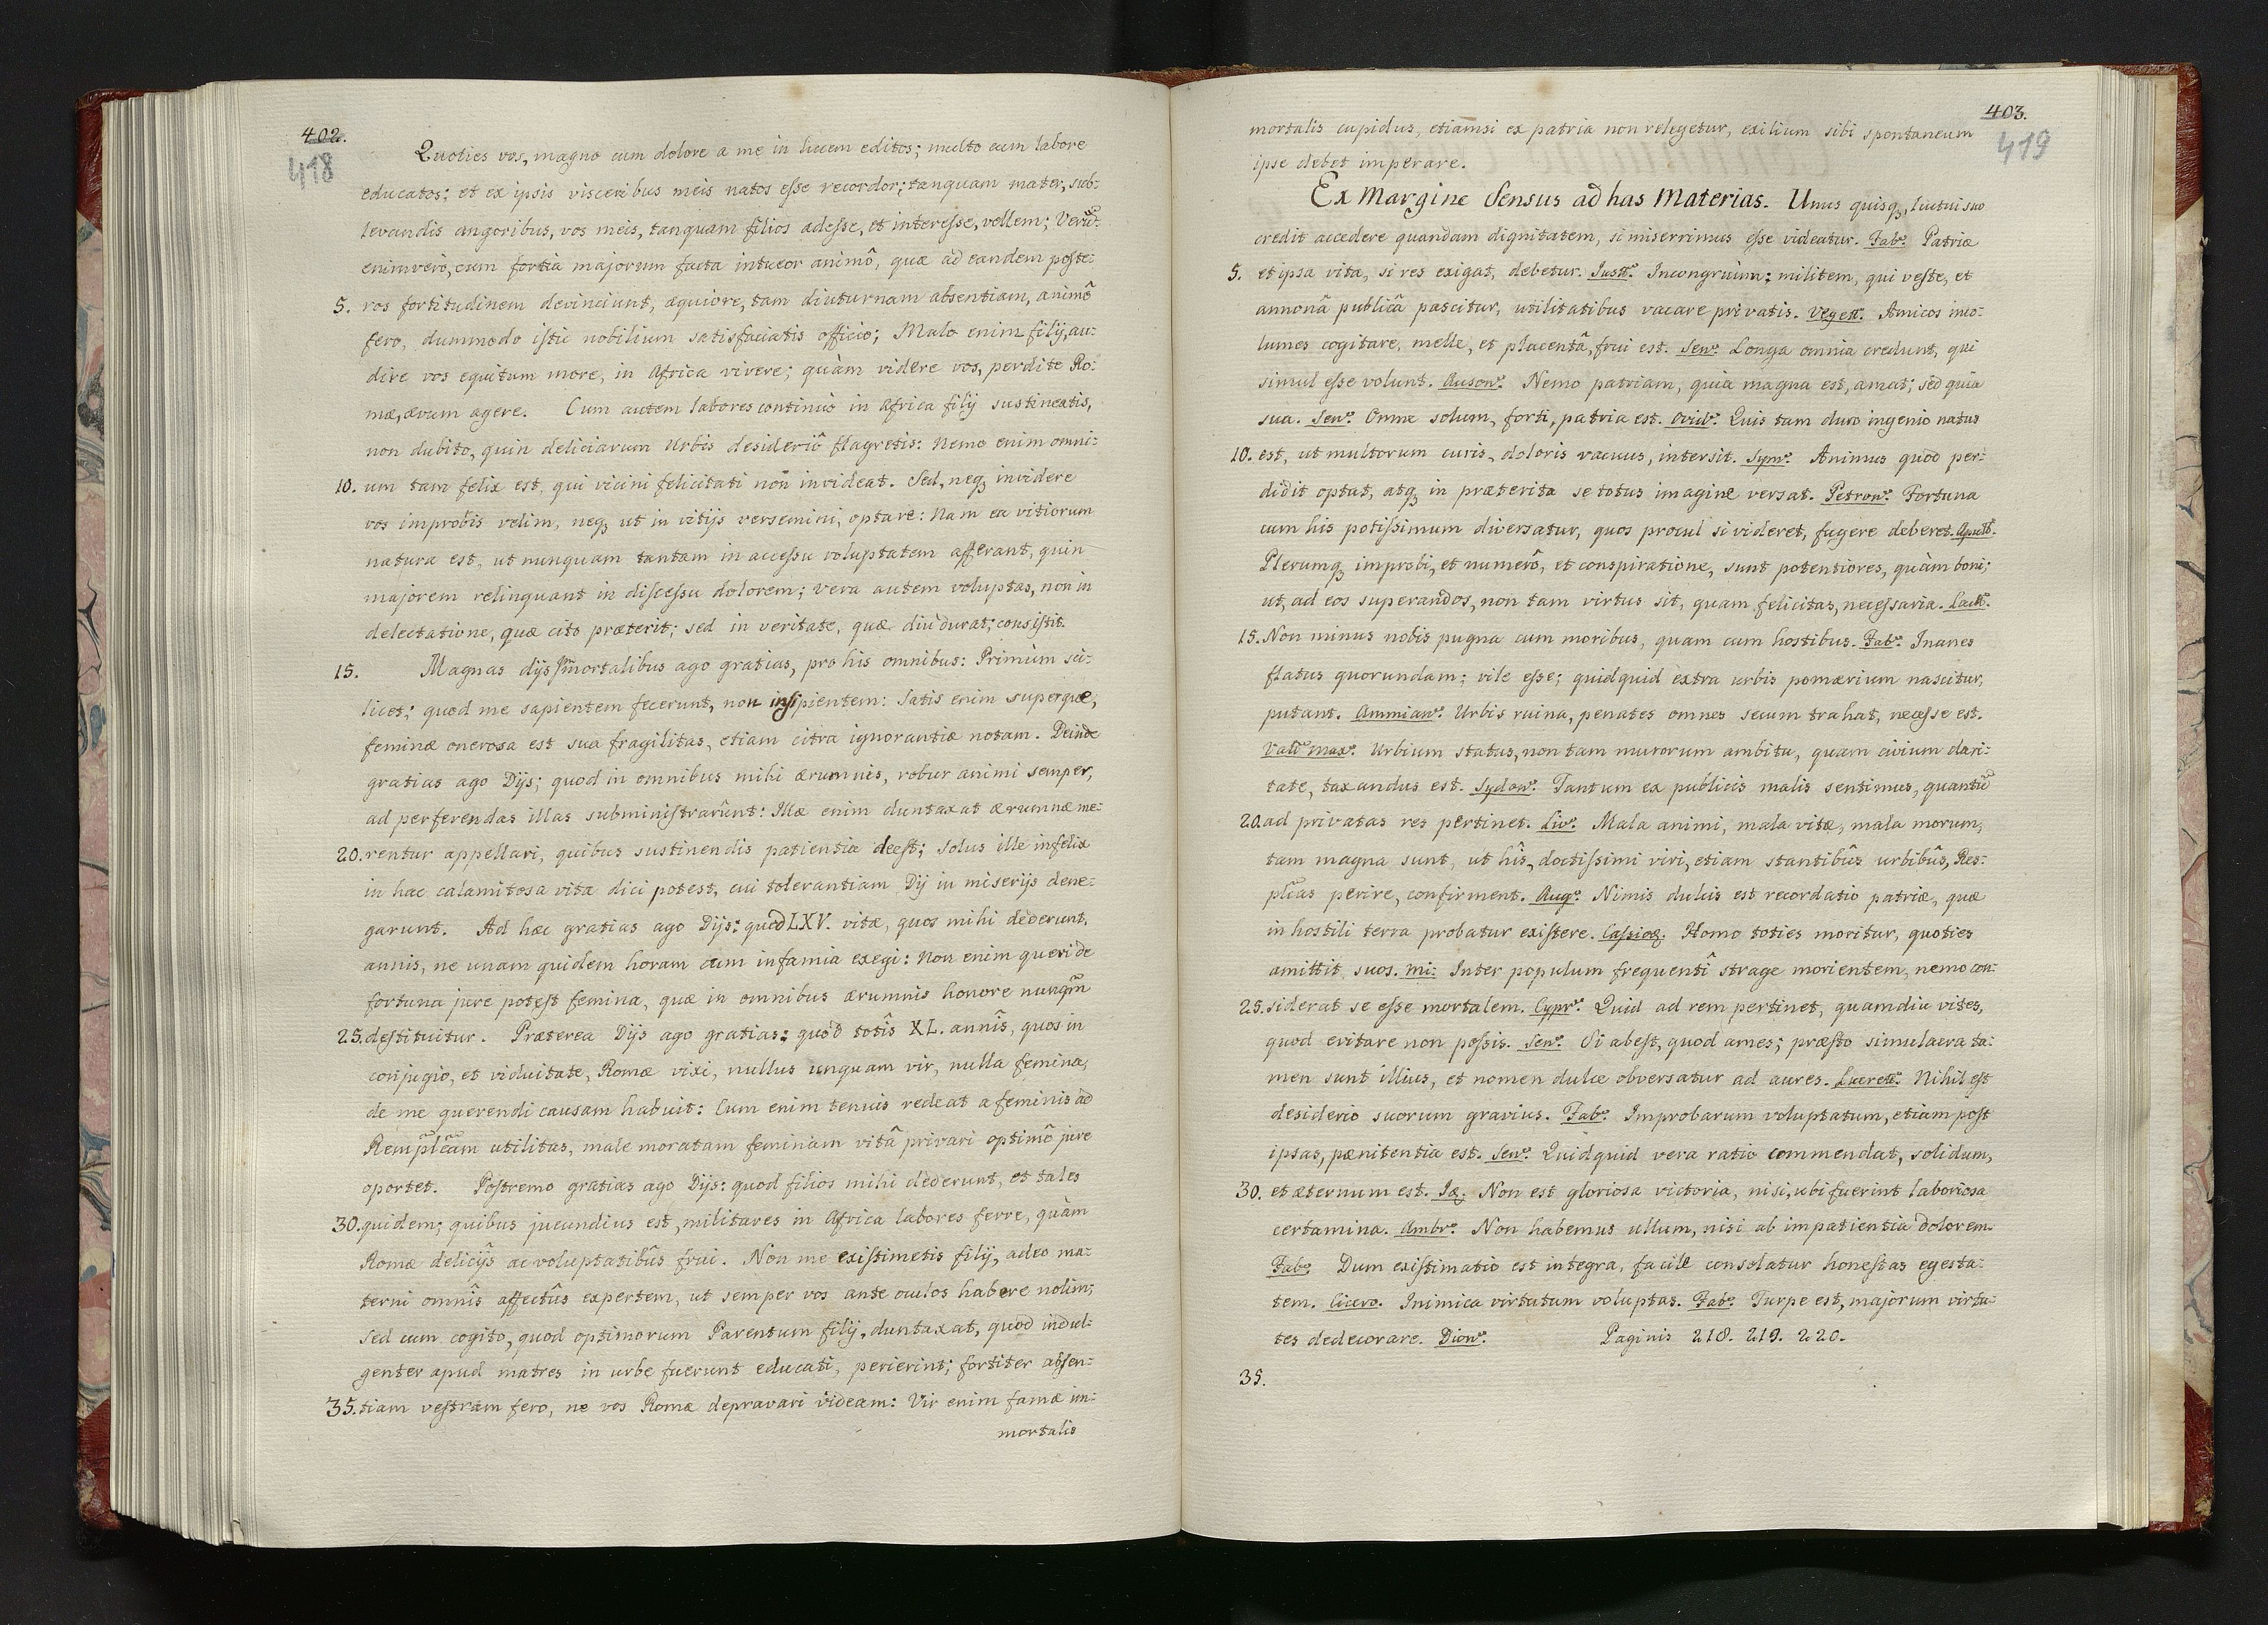 402.
418
Quoties vos, magno cum dolore a me in lucem editos; multo cum labore
educatos; et ex ipsis visceribus meis natos eſse recordor; tanquam mater, sub-
levandis angoribus, vos meis, tanquam filios adeſse, et intereſse, vellem; Verũ-
enimverò, cum fortia majorum facta intueor animô, quæ ad eandem poſte-
5. ros fortitudinem devinciunt, æquiore, tam diuturnam absentiam, animô
fero, dummodo iſtic nobilium satisfaciatis officio; Malo enim filij, au-
dire vos equitum more, in Africa vivere; quàm videre vos, perdite Ro-
mæ, ævum agere. Cum autem labores continuò in Africa filij sustineatis,
non dubito, quin deliciarum Urbis desideriô flagretis: Nemo enim omni-
10. um tam felix est, qui vicini felicitati non invideat. Sed, neq; invidere
vos improbis velim, neq; ut in vitijs versemini, optare: Nam ea vitiorum
natura est, ut nunquam tantam in acceſsu voluptatem afferant, quin
majorem relinquant in diſceſsu dolorem; vera autem voluptas, non in
delectatione, quæ cito præterit; sed in veritate, quæ diu durat; consiſtit.
15. Magnas dijs Im̃ortalibus ago gratias, pro his omnibus: Primùm sci-
licet; quod me sapientem fecerunt, non insipientem: Satis enim superque,
feminæ onerosa est sua fragilitas, etiam citra ignorantiæ notam. Deinde
gratias ago Dijs; quod in omnibus mihi ærumnis, robur animi semper,
ad perferendas illas subminiſtrarûnt: Illæ enim duntaxat ærumnæ me-
20. rentur appellari, quibus sustinendis patientia deeſt; solus ille infelix
in hac calamitosa vita dici potest, cui tolerantiam Dij in miserijs dene-
garunt. Ad hæc gratias ago Dijs: quod LXV. vitæ, quos mihi dederunt,
annis, ne unam quidem horam cum infamia exegi: Non enim queri de
fortuna jure poteſt femina, quæ in omnibus ærumnis honore nunq̃m
25. deſtituitur. Præterea Dijs ago gratias: quòd totîs XL. annîs, quos in
conjugio, et viduitate, Romæ vixi, nullus unquam vir, nulla femina,
de me querendi causam habuit: Cum enim tenuis redeat a feminis ad
Rempl̃cam utilitas, male moratam feminam vitâ privari optimô jure
oportet. Poſtremo gratias ago Dijs: quod filios mihi dederunt, et tales
30. quidem; quibus jucundius est, militares in Africa labores ferre, quàm
Romæ delicijs ac voluptatibûs frui. Non me exiſtimetis filij, adeo ma-
terni omnîs affectûs expertem, ut semper vos ante oculos habere nolim;
Sed cum cogito, quod optimorum Parentum filij, duntaxat, quod indul-
genter apud matres in urbe fuerunt educati, perierint; fortiter absen-
35. tiam veſtram fero, ne vos Romæ depravari videam: Vir enim famæ im-
mortalis
403.
419
mortalis cupidus, etiamsi ex patria non relegetur, exilium sibi spontaneum
ipse debet imperare.
Ex Margine Sensus ad has Materias. Unus quisq;, luctui suo
credit accedere quandam dignitatem, si miserrimus eſse videatur. Fab: Patriæ
5. et ipsa vita, si res exigat, debetur. Just: Incongruum; militem, qui veſte, et
annonâ publicâ pascitur, utilitatibus vacare privatis. Veget: Amicos inco-
lumes cogitare, melle, et placentâ, frui est. Sen: Longa omnia credunt, qui
simul eſse volunt. Auson: Nemo patriam, quia magna est, amat; sed quia
sua. Sen: Omne solum, forti, patria est. Ovid: Quis tam duro ingenio natus
10. est, ut multorum curis, doloris vacuus, intersit. Sym: Animus quod per-
didit optat, atq; in præterita se totus imagine versat. Petron: Fortuna
cum his potiſsimum diversatur, quos procul si videret, fugere deberet. Apull:
Plerumq; improbi, et numerô, et conspiratione, sunt potentiores, quàm boni;
ut, ad eos superandos, non tam virtus sit, quam felicitas, neceſsaria. Lact:
15. Non minus nobis pugna cum moribus, quam cum hostibus. Fab: Inanes
flatus quorundam; vile eſse; quidquid extra urbis pomærium nascitur,
putant. Ammian: Urbis ruina, penates omnes secum trahat, neceſse est.
Vall max: Urbium status, non tam murorum ambitu, quam civium clari-
tate, taxandus est. Sydon: Tantum ex publicis malis sentimus, quantũ
20. ad privatas res pertinet. Liv: Mala animi, mala vitæ, mala morum,
tam magna sunt, ut hîs, doctiſsimi viri, etiam stantibûs urbibûs, Res-
pl̃cas perire, confirment. Aug: Nimis dulcis est recordatio patriæ, quæ
in hostili terra probatur exiſtere. Caſsiod. Homo toties moritur, quoties
amittit suos. Mi: Inter populum frequentî strage morientem, nemo con-
25. siderat se eſse mortalem. Cypr: Quid ad rem pertinet, quamdiu vites,
quod evitare non poſsis. Sen: Si abeſt, quod ames; præſto simulacra ta-
men sunt illius, et nomen dulce obversatur ad aures. Lucret: Nihil eſt
desiderio suorum gravius. Fab: Improbarum voluptatum, etiam poſt
ipsas, pænitentia est. Sen: Quidquid vera ratio commendat, solidum,
30. et æternum est. Id. Non est gloriosa victoria, nisi, ubi fuerint laboriosa
certamina. Ambr: Non habemus ullum, nisi ab impatientia dolorem.
Fab: Dum exiſtimatio est integra, facile consolatur honeſtas egesta-
tem. Cicero. Inimica virtutum voluptas. Fab: Turpe est, majorum virtu-
tes dedecorare. Dion: Paginis 218. 219. 220.
35.